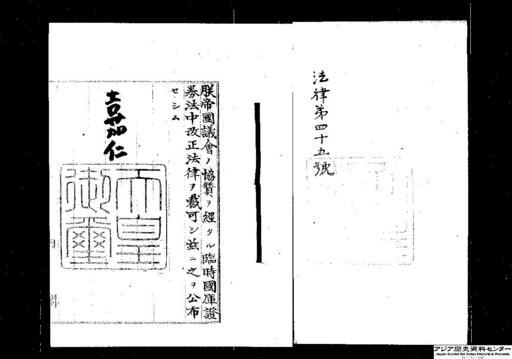 法律第四十五號
朕帝國議會ノ協贊ヲ經タル臨時國庫證
券法中改正法律ヲ裁可シ茲ニ之ヲ公布
セシム
嘉仁
天皇
御璽
アジア歴史資料センター
Japan Center for Asian Historical Records